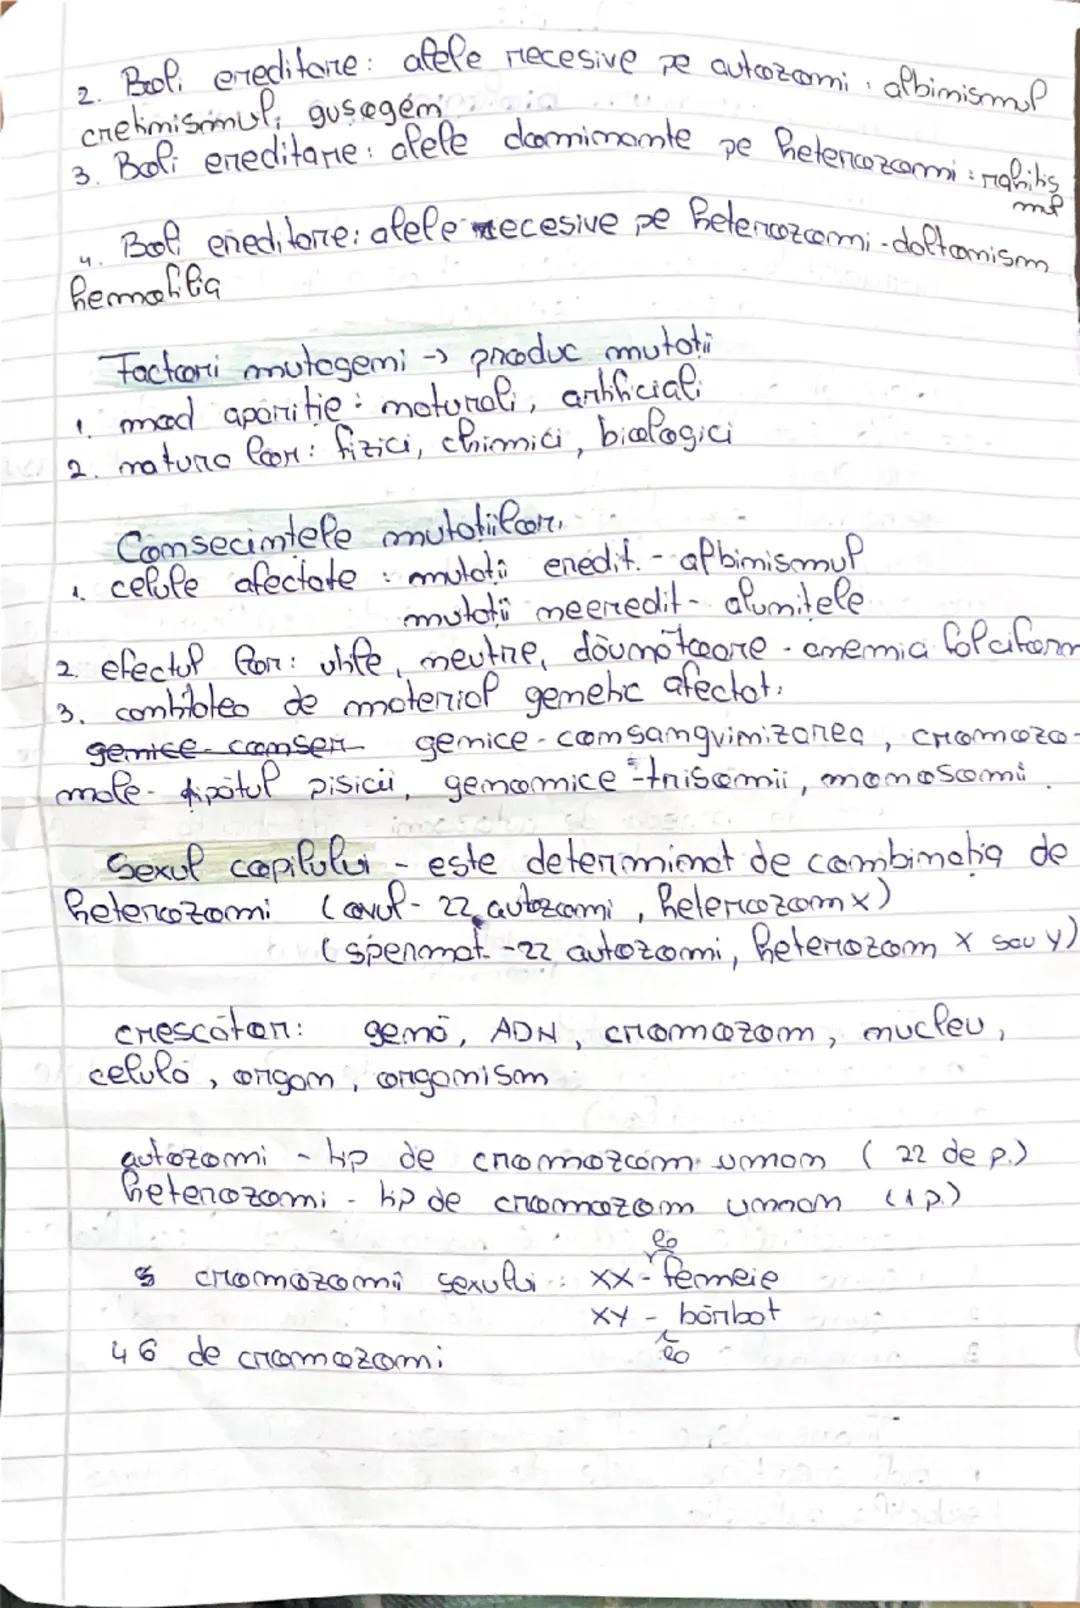 2. Boli ereditare: alele recesive pe autozomi: albinismul
cretinismul, gușogen
3. Boli ereditare: alele dominante pe heterozomi: rahitis
mul
4. Boli ereditare: alele recesive pe heterozomi - daltonism
hemofilia
Factorii mutageni -> produc mutații
1. mod apariție: naturali, artificiali
2. natura lor: fizici, chimici, biologici
Consecințele mutațiilor:
1. celule afectate: mutații eredit. - albinismul
mutații neeredit - alunițele
2. efectul lor: utile, neutre, dăunătoare - anemia falciform
3. cantitatea de material genetic afectat:
genice - conser genice - consangvinizarea, cromozo-
male - țipătul pisicii, genomice - trisomii, monosomii
Sexul copilului - este determinat de combinația de
heterozomi (ovul - 22 autozomi, heterozom x)
(spermat. - 22 autozomi, heterozom x sau y)
crescător: genă, ADN, cromozom, nucleu,
celulă, organ, organism
autozomi - tip de cromozom uman (22 de p.)
heterozomi - tip de cromozom uman (1 p.)
cromozomii sexului: XX - femeie
XY - bărbat
46 de cromozomi